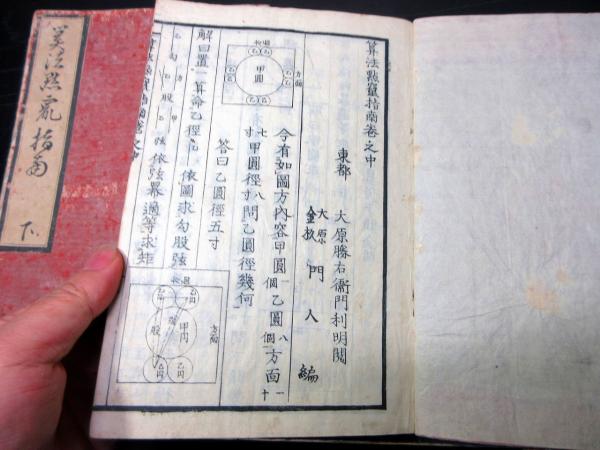 算法點竄指南卷之中
東都
大原勝右衞門利明閲
大原
門人
編
今有如圖方内容甲圓一個乙圓八個方面一十
七寸甲圓徑八寸問乙圓徑幾何
答曰乙圓徑五寸
解曰置一算命乙徑
依圖求勾股弦
勾
股
弦
依弦冪適等求矩
方面
甲圓
方面
甲円
乙円
乙円
乙円
乙円
股
算法點竄指南
下